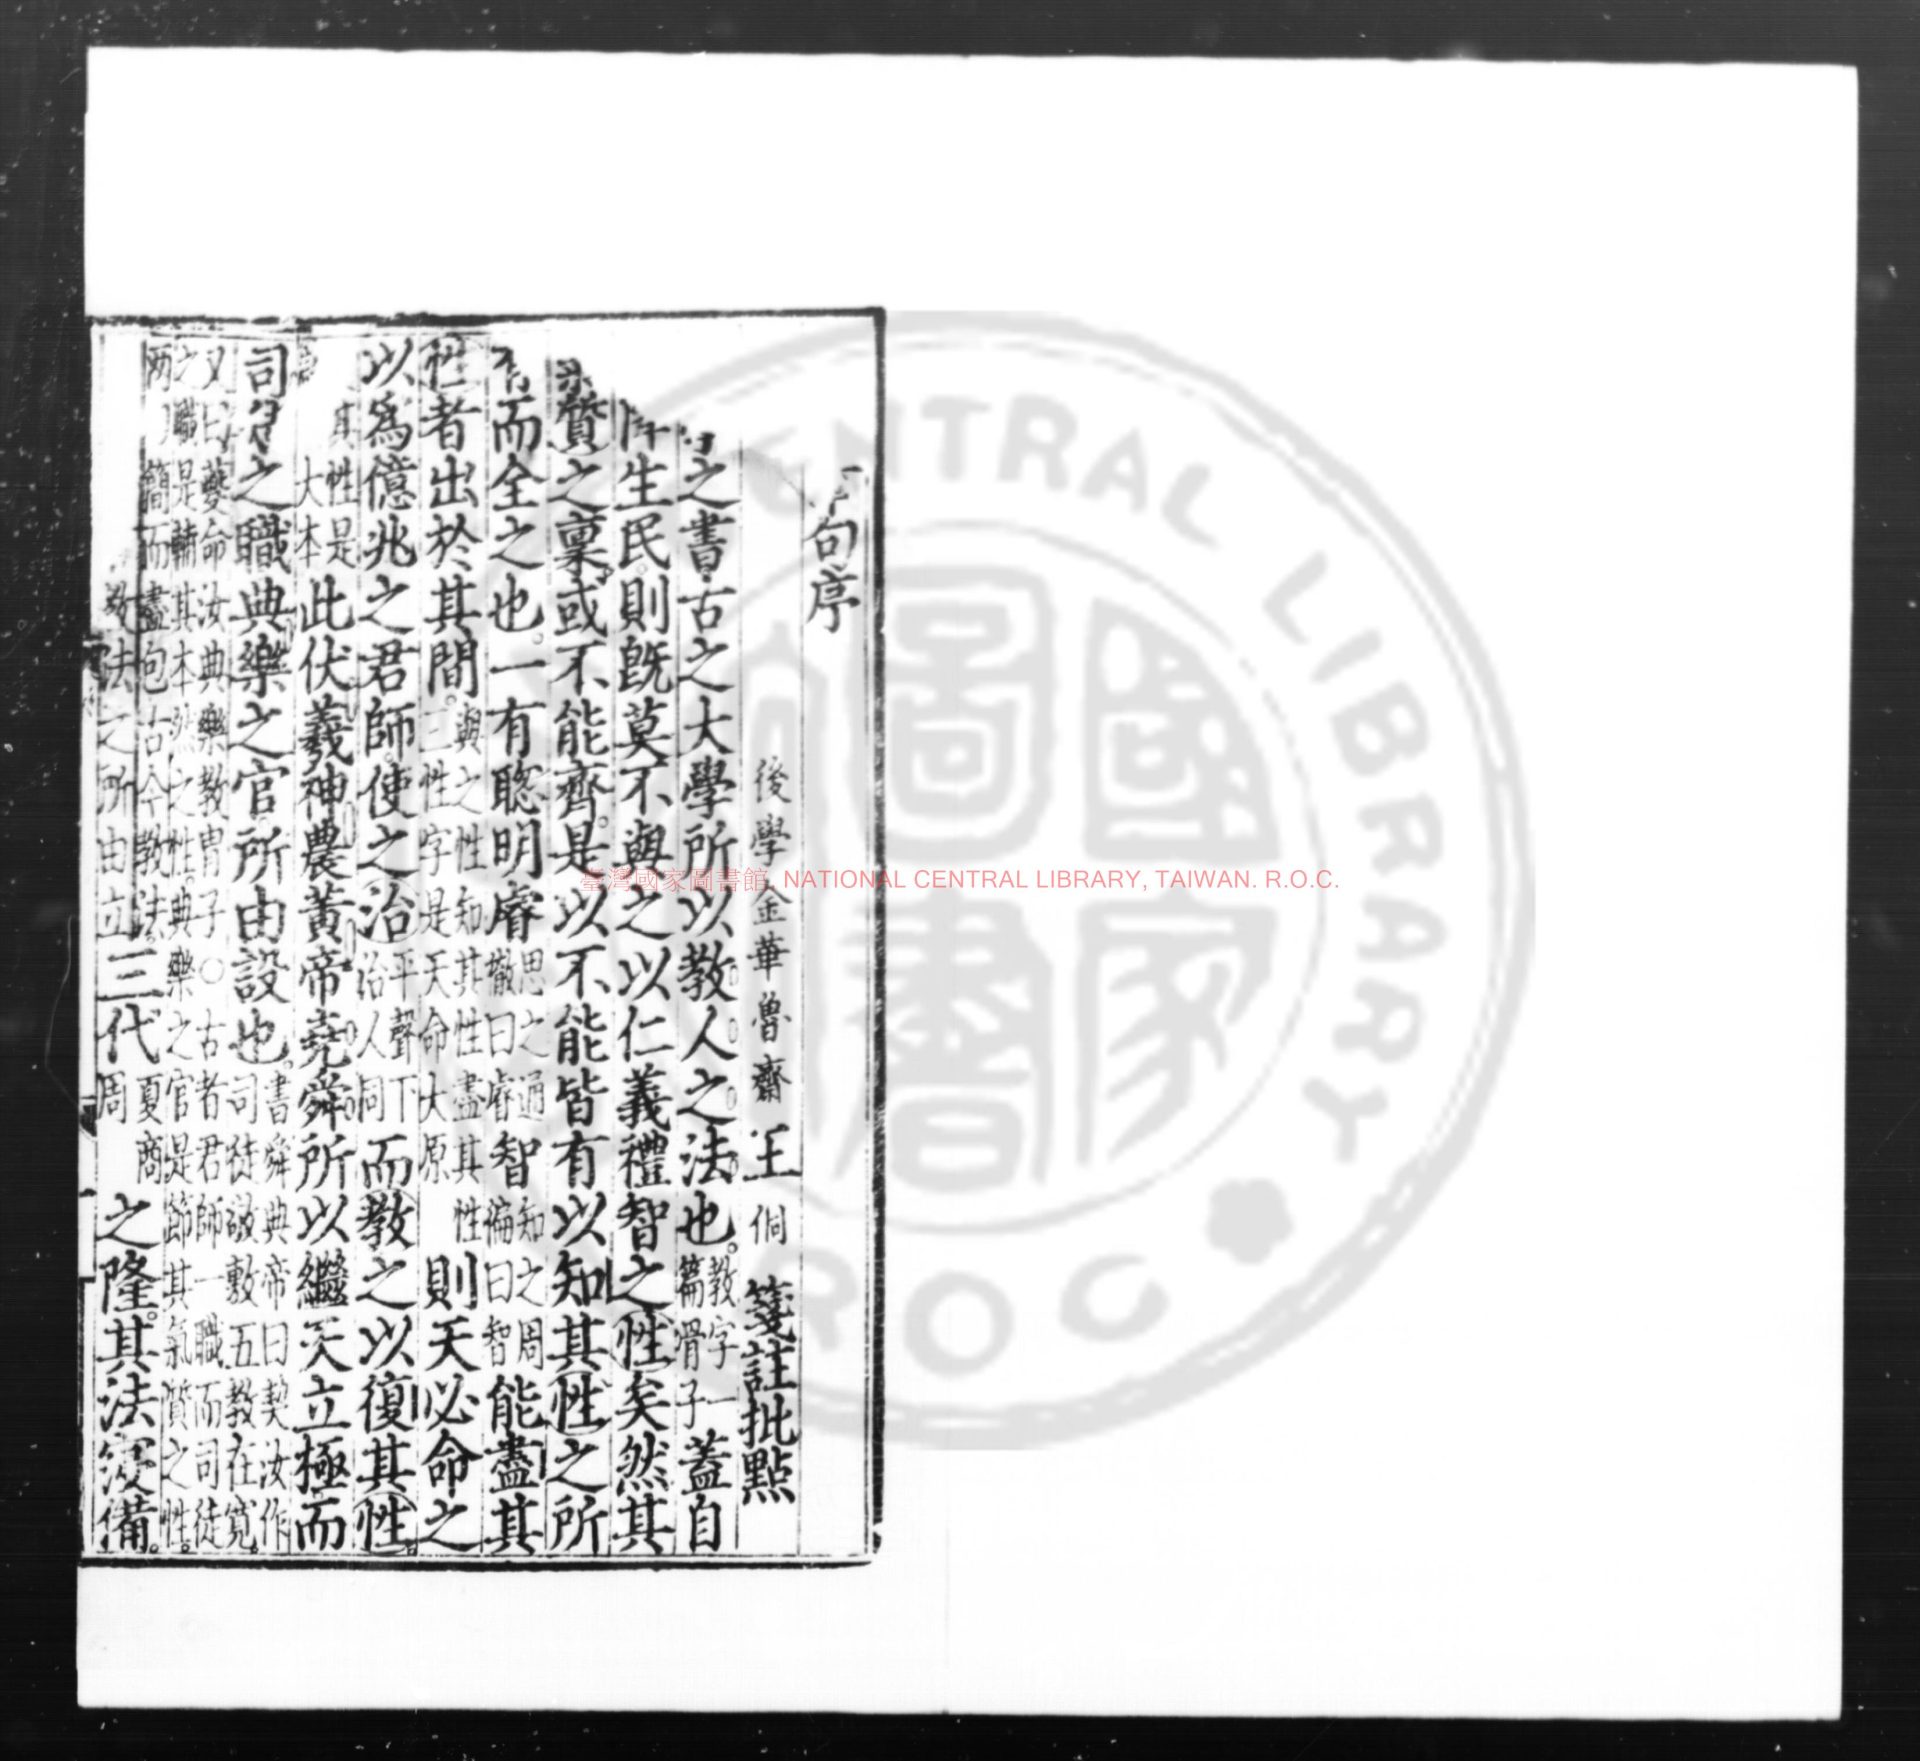 句序
後學金華魯齋王侗箋註批點
之書古之大學所以教人之法也。教字一篇骨子蓋自
生民。則旣莫不與之以仁義禮智之性矣然其
質之稟或不能齊。是以不能皆有以知其性之所
有而全之也。一有聦明睿思之通徹曰睿智知之周徧曰智能盡其
性者出於其間。與之性知其性盡其性三性字是天命大原則天必命之
以爲億兆之君師。使之治平聲下治人同而教之以復其性。
其性是大本此伏羲神農黃帝堯舜所以繼天立極而
司之職典樂之官所由設也。書舜典帝曰契汝作司徒敬敷五教在寛。
又曰夔命汝典樂教胄子〇古者君師一職而司徒之職是輔其本然之性。典樂之官是節其氣質之性。
兩簡而盡包古今教法。教法之所由立三代夏商周之隆。其法寖備。
臺灣國家圖書館, NATIONAL CENTRAL LIBRARY, TAIWAN. R.O.C.
國家圖書
CENTRAL LIBRARY
ROC